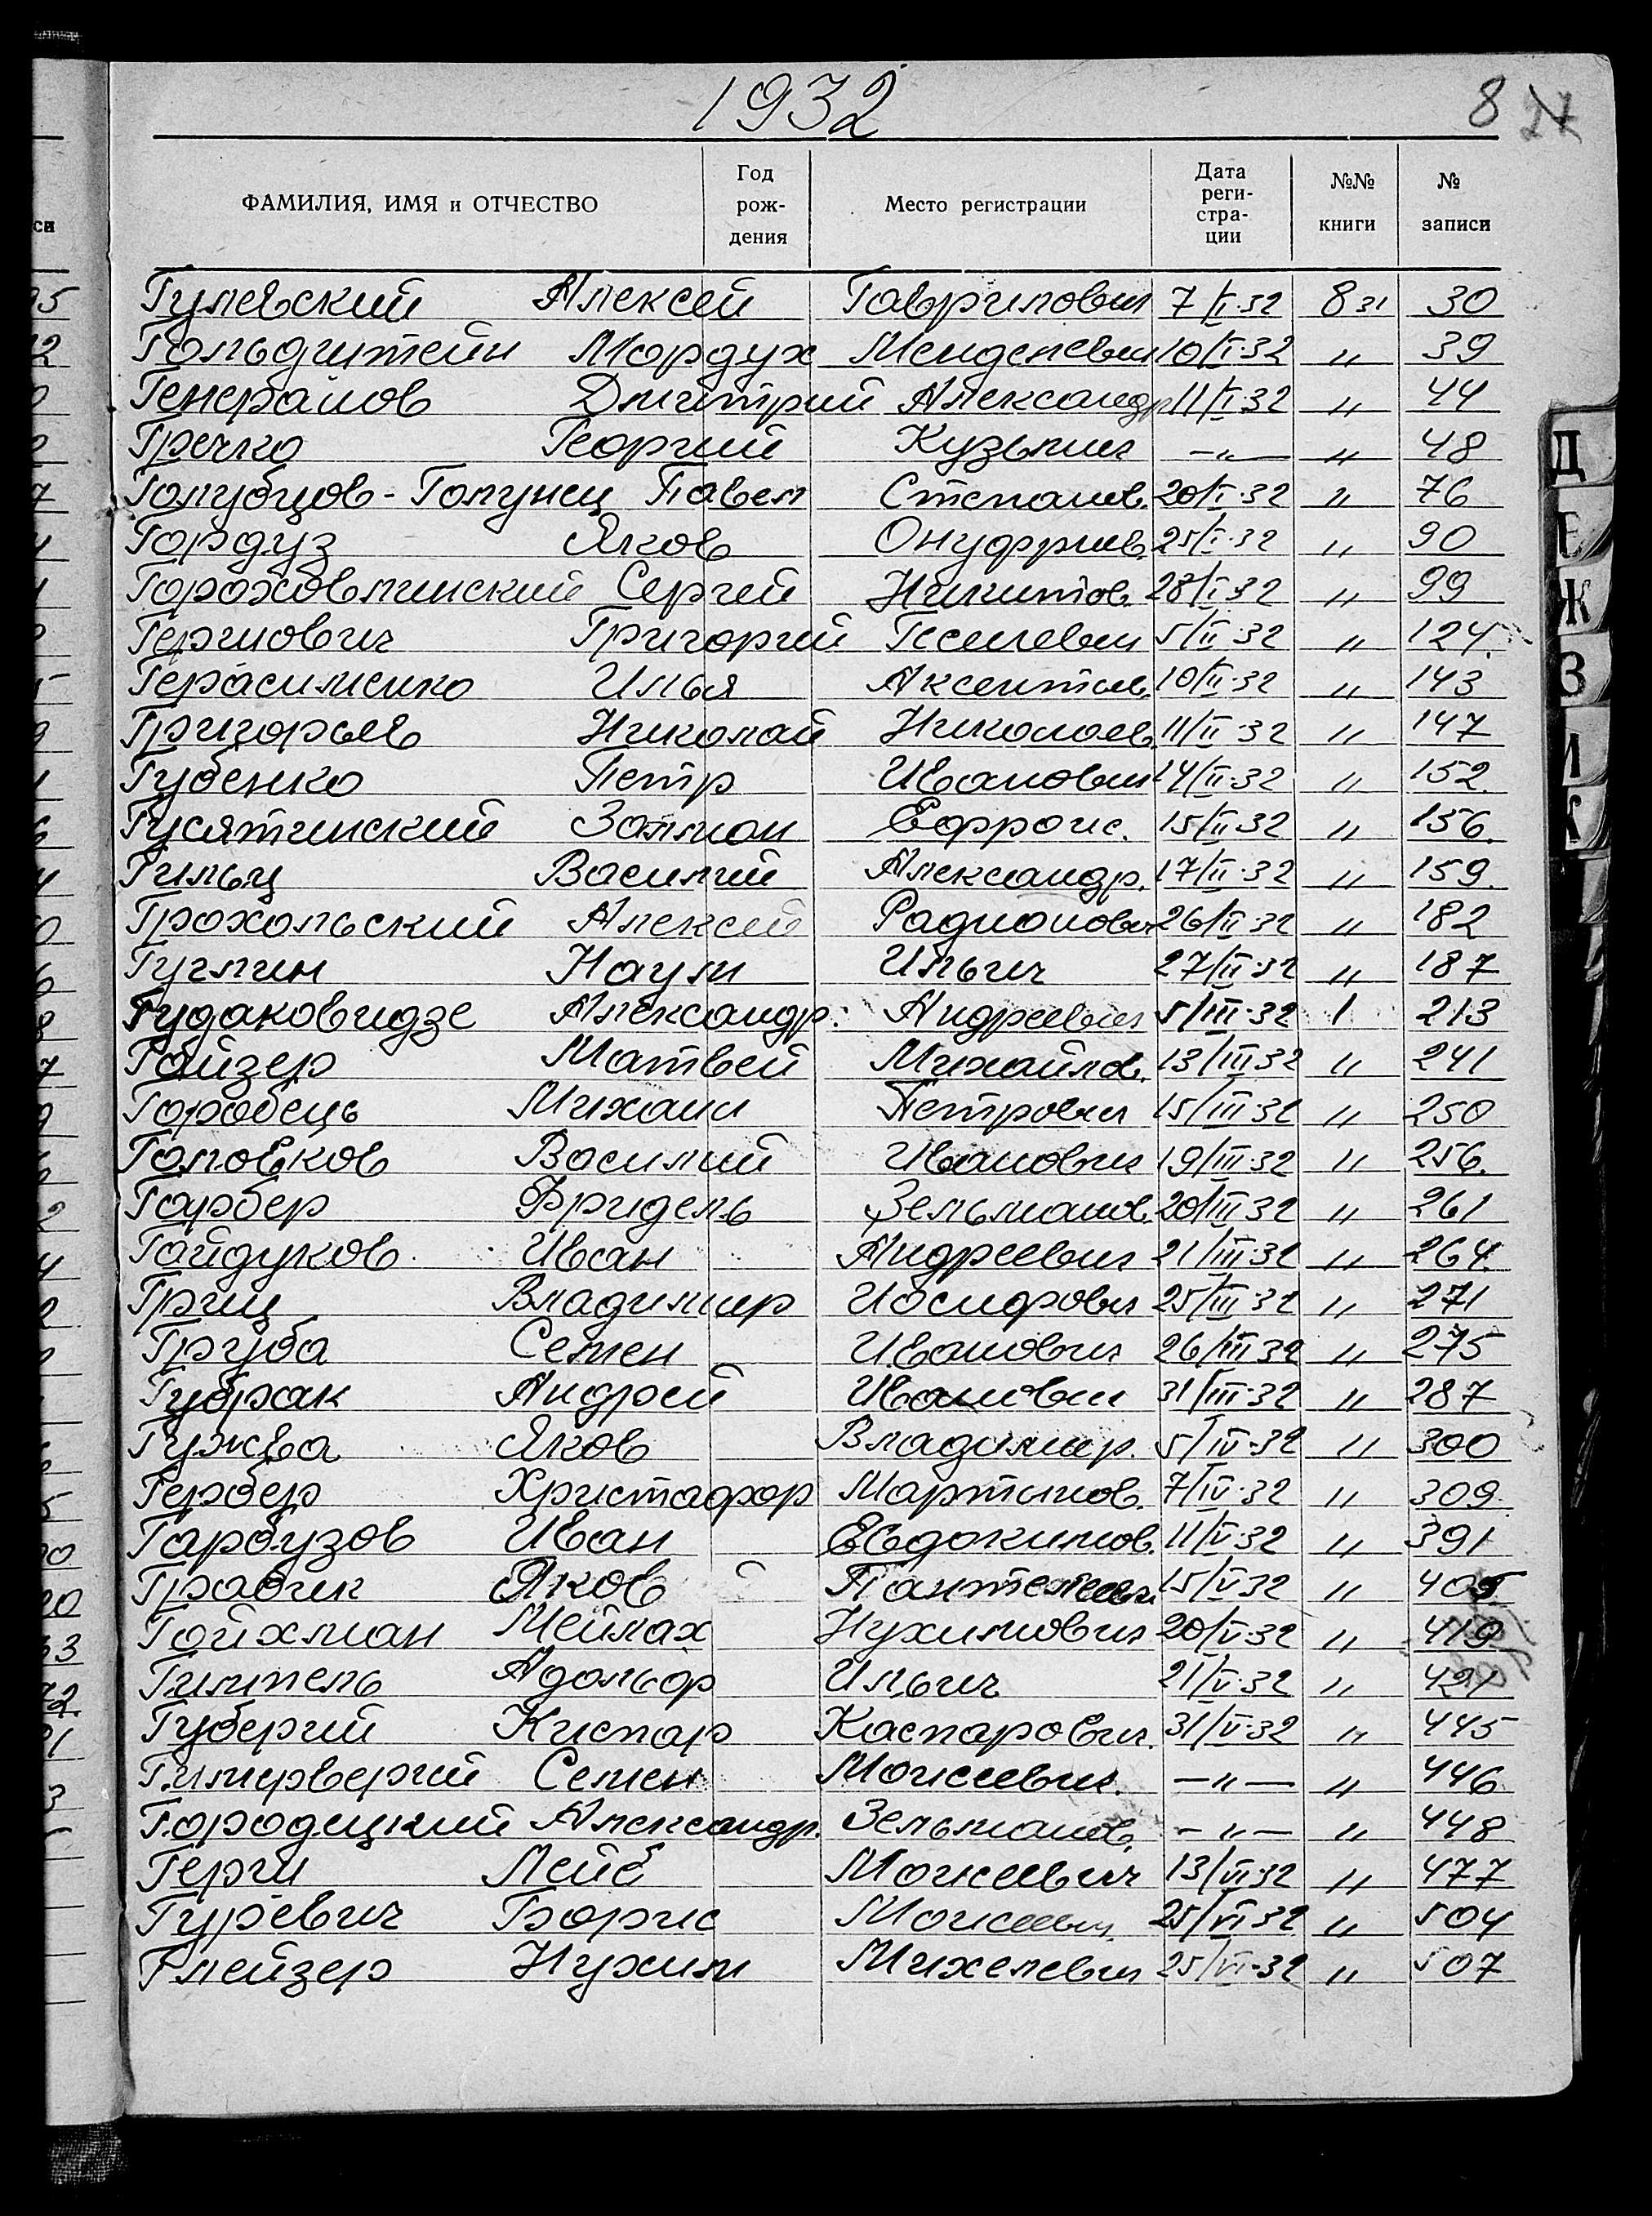 1932
8 27
ФАМИЛИЯ, ИМЯ и ОТЧЕСТВО Год рож- дения Место регистрации Дата реги- стра- ции №№ книги № записи
Гулевский Алексей Гаврилович 7/I·32 8 31 30
Гольдштейн Мордух Менделевич 10/I·32 " 39
Генералов Дмитрий Александр 11/I·32 " 44
Гречко Георгий Кузьмич -"- " 48
Голубцов-Голунец Павел Степанов. 20/I·32 " 76
Гордуз Яков Онуфриев. 25/I·32 " 90
Гороховлинский Сергей Никитов. 28/I·32 " 99
Гершович Григорий Геселевич 5/II·32 " 124.
Герасименко Илья Аксентьев. 10/II·32 " 143
Григорьев Николай Николаев. 11/II·32 " 147
Губенко Петр Иванович 14/II·32 " 152.
Гусятинский Залман Ефроис. 15/II·32 " 156.
Гильц Василий Александр. 17/II·32 " 159.
Грохольский Алексей Радионович 26/II·32 " 182
Гуглин Наум Ильич 27/II·32 " 187
Гудаковидзе Александр. Андреевич 5/III·32 1 213
Гойзер Матвей Михайлов. 13/III·32 " 241
Горобець Михаил Петрович 15/III·32 " 250
Головков Василий Иванович 19/III·32 " 256.
Гарбер Фридель Зельманов. 20/III·32 " 261
Гайдуков Иван Андреевич 21/III·32 " 264.
Гриц Владимир Иосифович 25/III·32 " 271
Груба Семен Иванович 26/III·32 " 275
Губрак Андрей Иванович 31/III·32 " 287
Гужва Яков Владимир. 5/IV·32 " 300
Гербер Христафор Мартынов. 7/IV·32 " 309.
Гарбузов Иван Евдокимов. 11/V·32 " 391
Грабчк Яков Пантелеевич 15/V·32 " 405
Гойхман Мейлах Нухимович 20/V·32 " 419
Гимпель Адольф Ильич 21/V·32 " 421
Губерий Киспар Каспарович. 31/V·32 " 445
Гимервергий Семен Моисеевич. -"- " 446
Городецкий Александр. Зельманов. -"- " 448
Герш Лейб Моисеевич 13/VI·32 " 477
Гуревич Борис Моисеевич. 25/VI·32 " 504
Глейзер Нухим Михелевич 25/VI·32 " 507
Д
Е
Ж
З
И
К